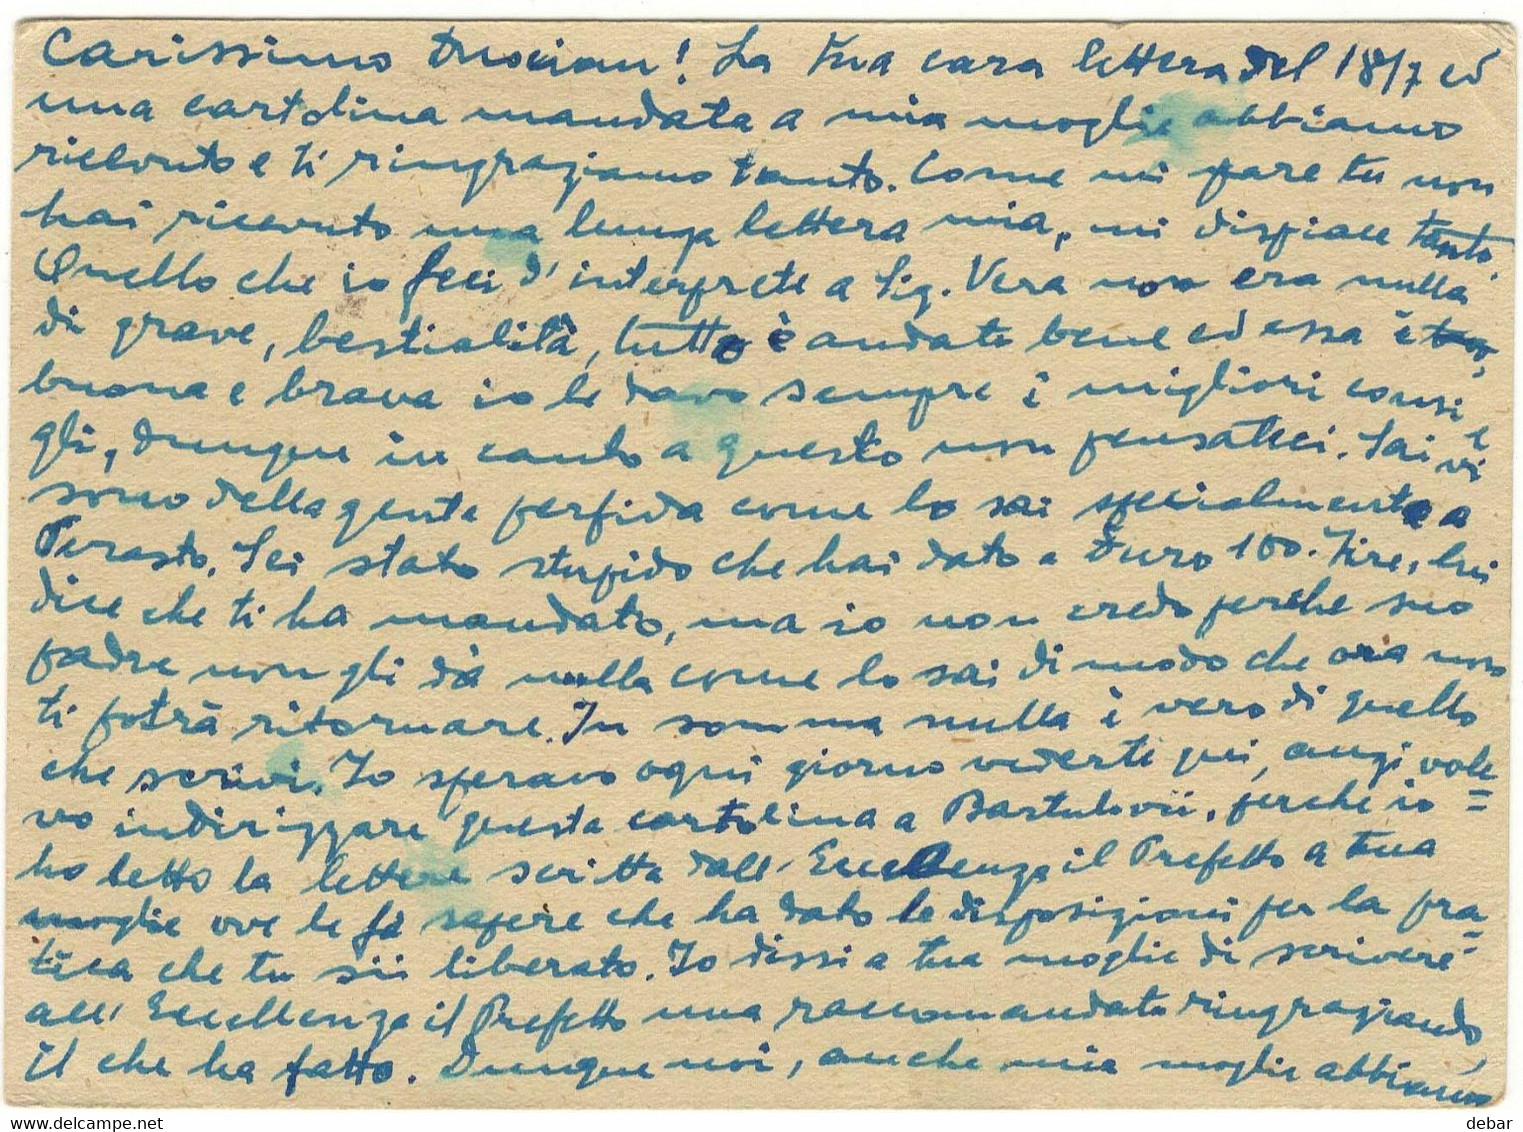 Carissimo Duscian! La Tua cara lettera del 18/7 ed
una cartolina mandata a mia moglie abbiamo
ricevuto e ti ringraziamo tanto. Come mi pare tu non
hai ricevuto una lunga lettera mia, mi dispiace tanto.
Quello che io feci d'interprete a Sig. Vera non era nulla
di grave, bestialità, tutto è andato bene ed essa è
buona e brava io le davo sempre i migliori consi
gli, dunque in canto a questo non pensateci. Sai vi
sono della gente perfida come lo sai specialmente a
Perasto. Sei stato stupido che hai dato a Duro 100. Lire, lui
dice che ti ha mandato, ma io non credo perche suo
padre non gli dà nulla come lo sai di modo che ora non
ti potrà ritornare. In somma nulla è vero di quello
che scrivi. Io speravo ogni giorno vederti qui, anzi vole=
vo indirizzare questa cartolina a Bartulovii, perche io
ho letto la lettera scritta dall'Eccellenza il Prefetto a tua
moglie ove le fà sapere che ha dato le disposizioni per la pra=
tica che tu sii liberato. Io dissi a tua moglie di scrivere
all'Eccellenza il Prefetto una raccomandata ringraziando,
il che ha fatto. Dunque noi, anche mia moglie abbiamo
debar